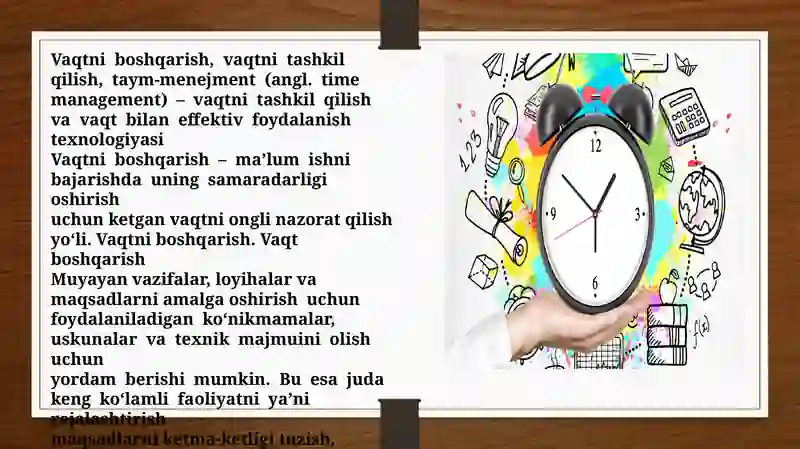 Vaqtni boshqarish, vaqtni tashkil
qilish, taym-menejment (angl. time
management) – vaqtni tashkil qilish
va vaqt bilan effektiv foydalanish
texnologiyasi
Vaqtni boshqarish – ma’lum ishni
bajarishda uning samaradarligi
oshirish
uchun ketgan vaqtni ongli nazorat qilish
yo‘li. Vaqtni boshqarish. Vaqt
boshqarish
Muyayan vazifalar, loyihalar va
maqsadlarni amalga oshirish uchun
foydalaniladigan ko‘nikmamalar,
uskunalar va texnik majmuini olish
uchun
yordam berishi mumkin. Bu esa juda
keng ko‘lamli faoliyatni ya’ni
rejalashtirish
maqsadlarni ketma-ketligi tuzish,
123
12
9
3
6
f(x)